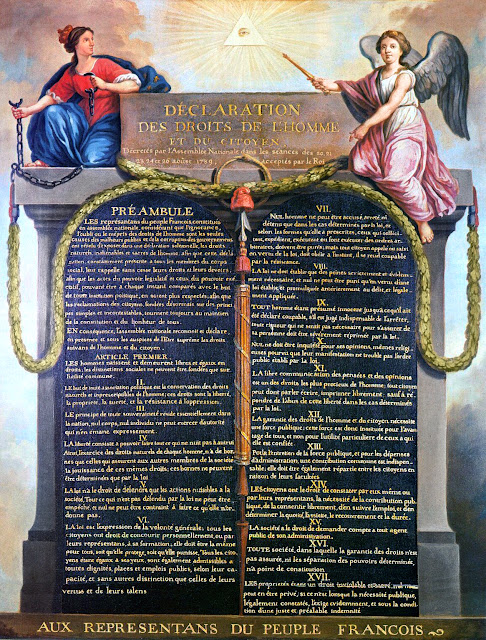 DÉCLARATION
DES DROITS DE L'HOMME
ET DU CITOYEN,
Décretés par l'Assemblée Nationale dans les séances des 20, 21
23, 24 et 26 aoust 1789, acceptés par le Roi
PRÉAMBULE
LES représentans du peuple François, constitués
en assemblée nationale, considérant que l'ignorance,
l'oubli ou le mépris des droits de l'homme sont les seules
causes des malheurs publics et de la corruption des gouvernemens
ont résolu d'exposer dans une déclaration solemnelle, les droits
naturels, inaliénables et sacrés de l'homme; afin que cette décla
ration, constamment présente a tous les membres du corps
social, leur rappelle sans cesse leurs droits et leurs devoirs;
afin que les actes du pouvoir législatif et ceux du pouvoir exé-
cutif, pouvant être a chaque instant comparés avec le but
de toute institution politique, en soient plus respectés; afin que
les reclamations des citoyens, fondées désormais sur des princi
pes simples et incontestables, tournent toujours au maintien
de la constitution et du bonheur de tous.
EN conséquence, l'assemblée nationale reconnoît et déclare
en presence et sous les auspices de l'Etre suprême les droits
suivans de l'homme et du citoyen.
ARTICLE PREMIER.
LES hommes naissent et demeurent libres et égaux en
droits; les distinctions sociales ne peuvent être fondées que sur
l'utilité commune.
II.
LE but de toute association politique est la conservation des droits
naturels et imprescriptibles de l'homme; ces droits sont la liberté,
la propriété, la sureté, et la résistance à l'oppression.
III.
LE principe de toute souveraineté réside essentiellement dans
la nation, nul corps, nul individu ne peut exercer d'autorité
qui n'en émane expressement.
IV.
LA liberté consiste a pouvoir faire tout ce qui ne nuit pas à autrui
Ainsi, l'exercice des droits naturels de chaque homme, n'a de bor-
nes que celles qui assurent aux autres membres de la société
la jouissance de ces mêmes droits; ces bornes ne peuvent
être déterminées que par la loi
V.
LA loi n'a le droit de défendre que les actions nuisibles à la
société. Tout ce qui n'est pas défendu par la loi ne peut être
empêché, et nul ne peut être contraint à faire ce qu'elle n'or-
donne pas.
VI.
LA loi est l'expression de la volonté générale; tous les
citoyens ont droit de concourir personnellement, ou par
leurs représentans, à sa formation; elle doit être la même
pour tous, soit qu'elle protege, soit qu'elle punisse, Tous les cito
yens étant égaux à ses yeux, sont également admissibles à
toutes dignités, places et emplois publics, selon leur ca-
pacité, et sans autres distinction que celles de leurs
vertus et de leurs talens
VII.
NUL homme ne peut être accusé, arreté, ni
détenu que dans les cas déterminés par la loi, et
selon les formes qu'elle a prescrites, ceux qui sollici-
tent, expédient, exécutent ou font exécuter des ordres ar-
bitraires, doivent être punis; mais tout citoyen appelé ou saisi
en vertu de la loi, doit obéir a l'instant, il se rend coupable
par la résistance.
VIII.
LA loi ne doit établir que des peines strictement et évidem-
ment nécessaire, et nul ne peut être puni qu'en vertu d'une
loi établie et promulguée antérierurement au délit, et légale-
ment appliquée.
IX.
TOUT homme étant présumé innocent jusqu'à ce qu'il ait
été déclaré coupable, s'il est jugé indispensable de l'arrêter,
toute rigueur qui ne serait pas nécessaire pour s'assurer de
sa personne doit être sévèrement réprimée par la loi.
X.
NUL ne doit être inquiété pour ses opinions, mêmes religi-
euses pourvu que leur manifestation ne trouble pas l'ordre
public établi par la loi.
XI.
LA libre communication des pensées et des opinions
est un des droits les plus precieux de l'homme; tout citoyen
peut dont parler écrire, imprimer librement: sauf à ré-
pondre de l'abus de cette liberté dans les cas déterminés
par la loi.
XII.
LA garantie des droits de l'homme et du citoyen nécessite
une force publique; cette force est donc instituée pour l'avan-
tage de tous, et non pour l'utilité particuliere de ceux a qui
elle est confiée.
XIII.
Pour l'entretien de la force publique, et pour les dépenses
d'administration, une contribution commune est indispen-
sable; elle doit être également répartie entre les citoyens en
raison de leurs facultées
XIV.
LES citoyens ont le droit de constater par eux même ou
par leurs représentans, la nécessité de la contribution pub-
lique, de la consentir librement, d'en suivre l'emploi, et d'en
déterminer la quotité, l'assiette, le recouvrement et la durée.
XV.
LA société a le droit de demander compte a tout agent
public de son administration.
XVI.
TOUTE société, dans laquelle la garantie des droits n'est
pas assurée, ni la séparation des pouvoirs déterminée,
n'a point de constitution
XVII.
LES propriétés étant un droit inviolable et sacré, nul ne peut
en être privé, si ce n'est lorsque la nécessité publique,
légalement constatée, l'exige évidemment, et sous la condi
tion d'une juste et préalable indemnité
AUX REPRESENTANS DU PEUPLE FRANCOIS